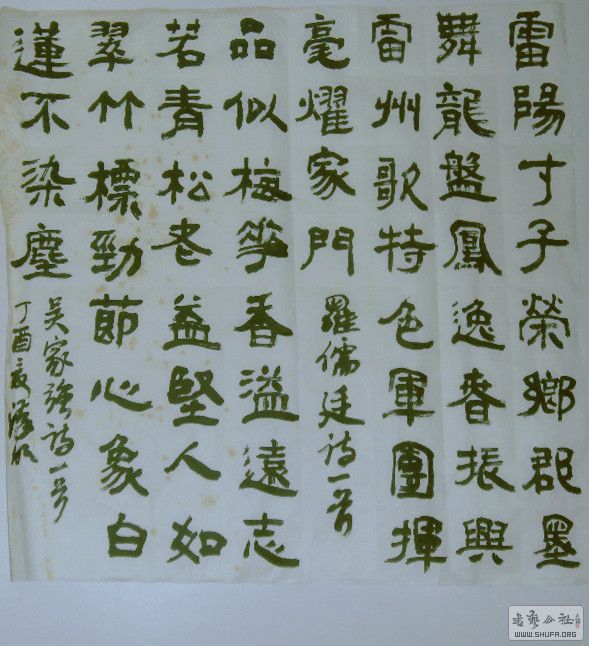 雷陽才子榮鄉郡墨
舞龍盤鳳逸春振興
雷州歌特色軍團揮
毫耀家門
羅儒廷詩一首
品似梅花香溢遠志
若青松老益堅人如
翠竹標勁節心象白
蓮不染塵
吴家强詩一首
丁酉夏
書藝公社
WWW.SHUFA.ORG